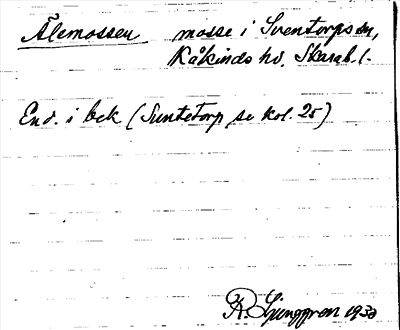 Ålemossen mosse i Sventorps sn,
Kåkinds hd. Skarab. l.
End. i bek (Suntetorp se kol. 25)
R. Ljunggren 1930